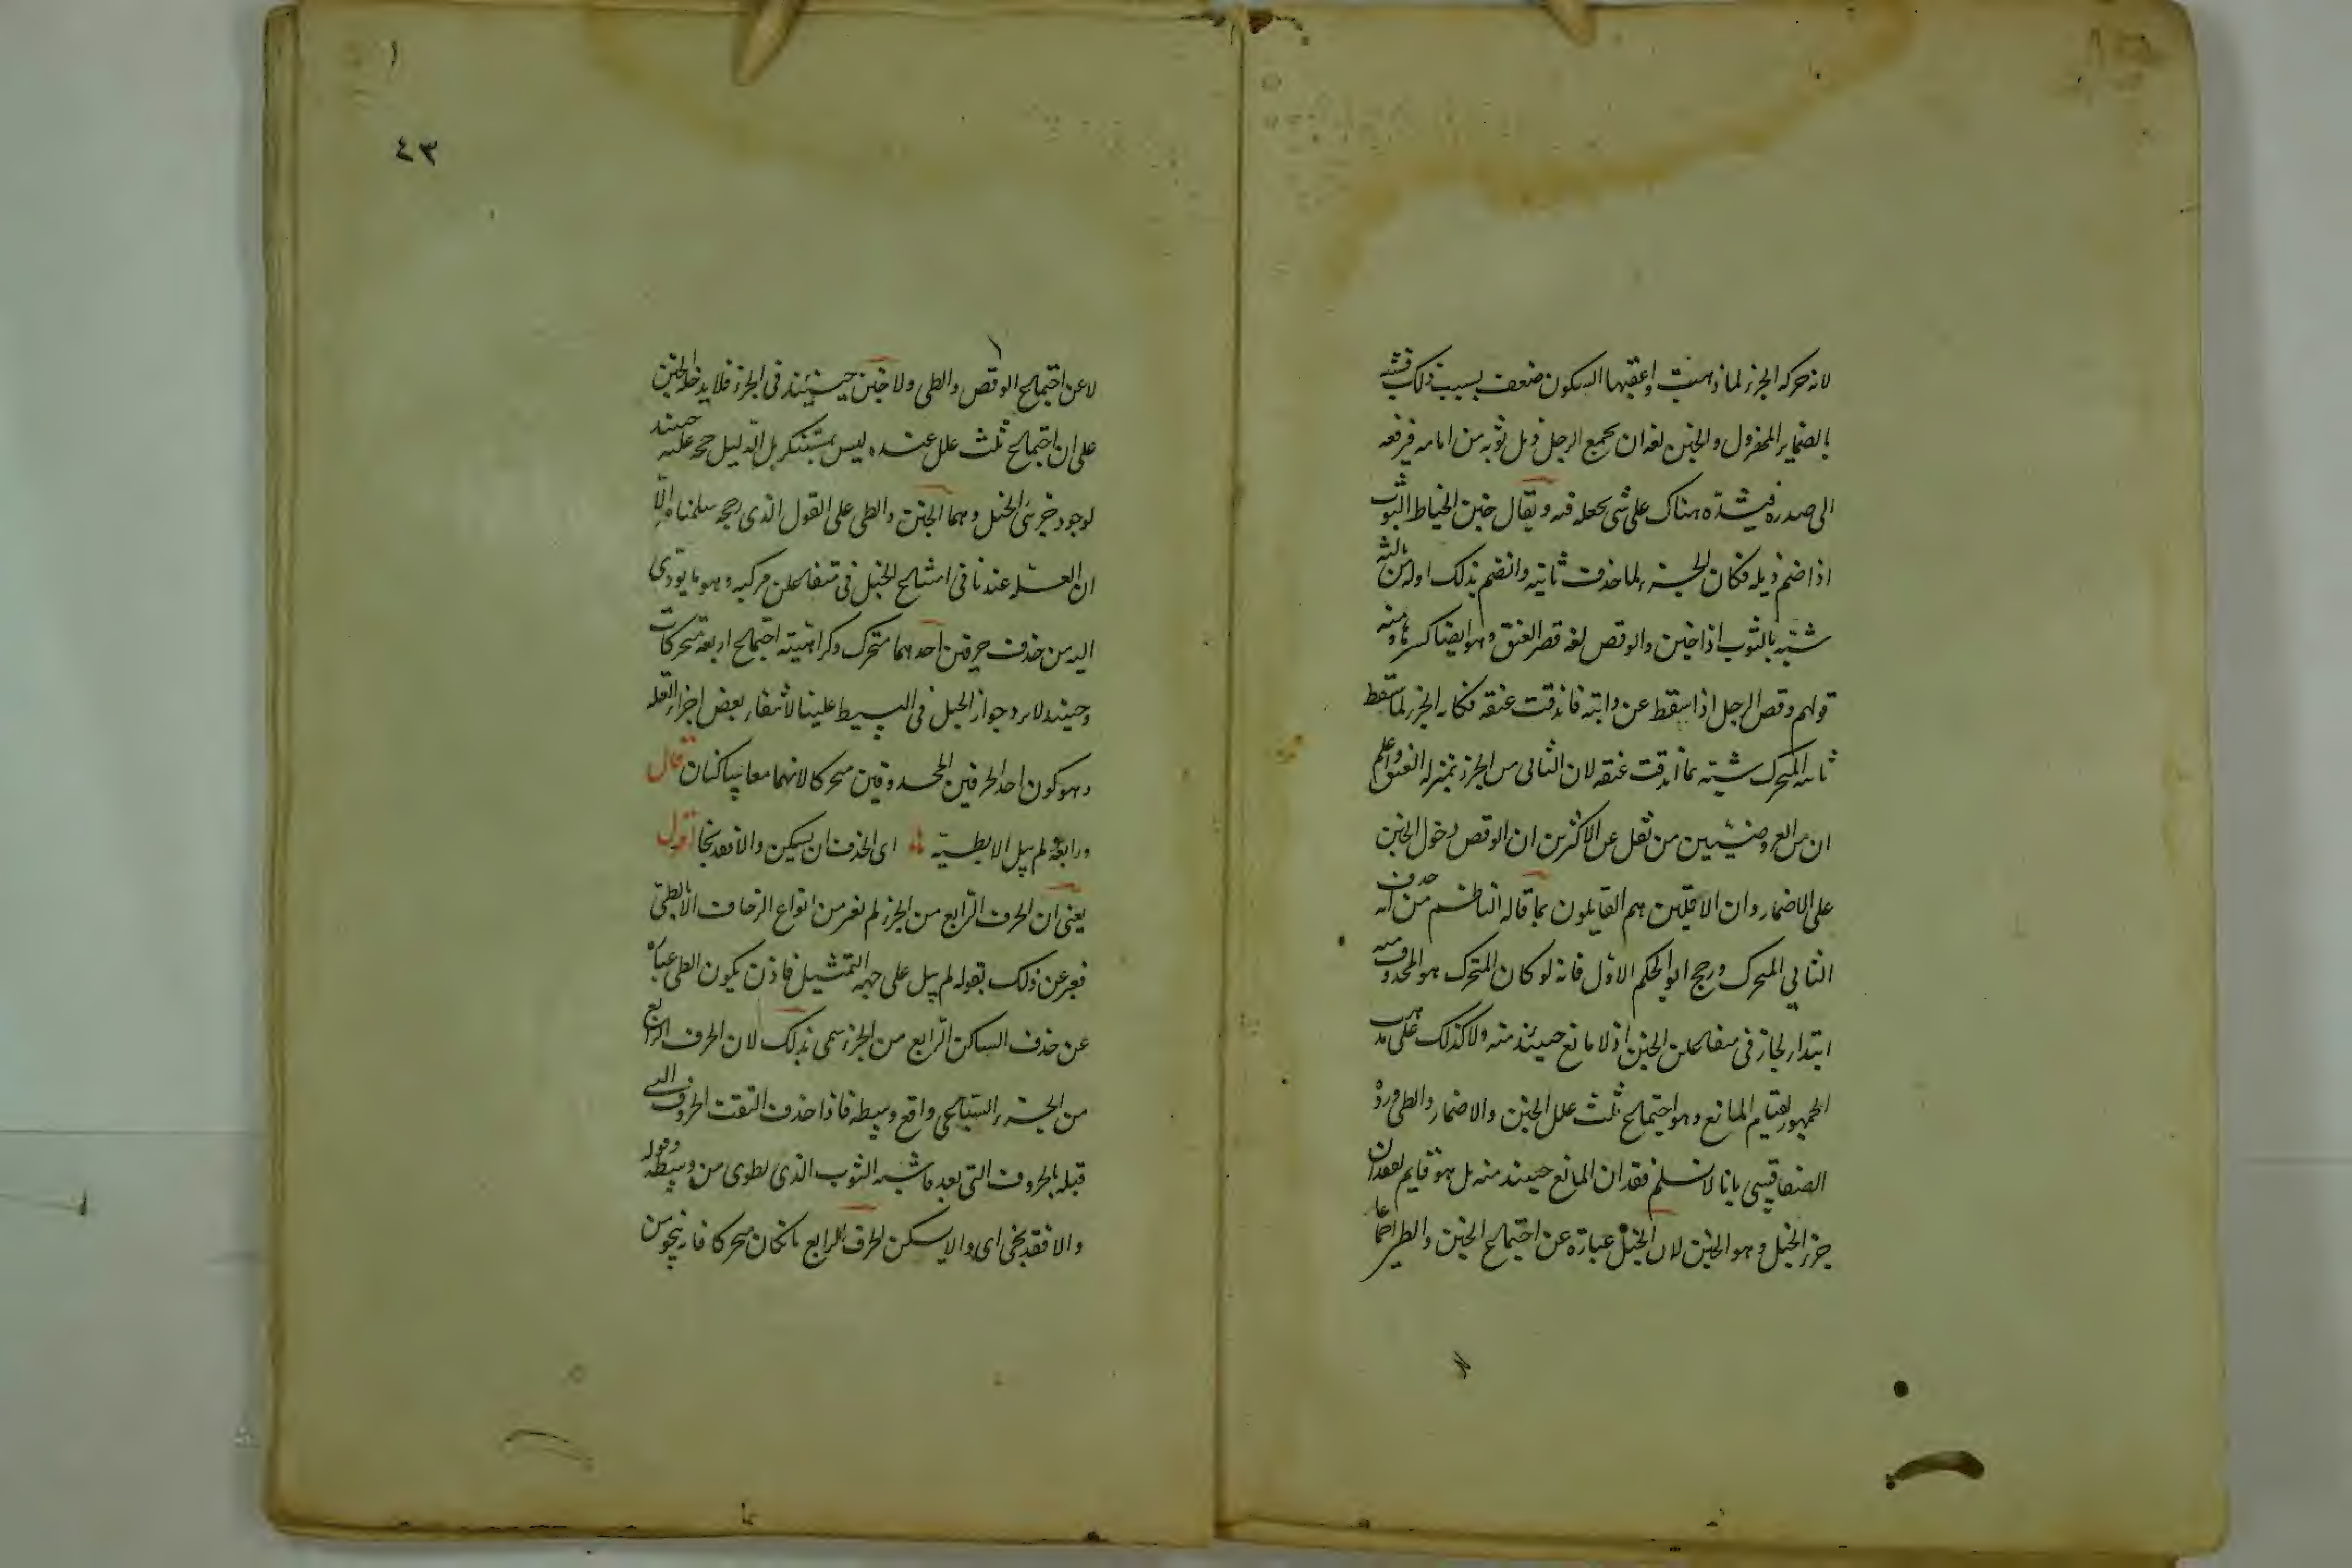 لانه حركة الجزء لما ذهبت واعقبها السكون ضعف بسبب ذلك فشبه
بالضامر المهزول والخبن لغة ان يجمع الرجل ذيل ثوبه من امامه فيرفعه
الى صدره فيشده هناك على شئ يجعله فيه ويقال خبن الخياط الثوب
اذا ضم ذيله فكان الجزء لما حذف ثانيه وانضم بذلك اوله من ثالثه
شبه بالثوب اذا خبن والوقص لغة قصر العنق وهو ايضا كسرها ومنه
قولهم وقص الرجل اذا سقط عن دابته فاندقت عنقه فكانه الجزء لما سقط
ثانيه المتحرك شبه بما اندقت عنقه لان الثانى من الجزء بمنزلة العنق واعلم
ان من العروضيين من نقل عن الاكثرين ان الوقص دخول الخبن
على الاضمار وان الاقلين هم القايلون بما قاله الناظم من انه حذف
الثاني المتحرك ورجح ابو الحكم الاول فانه لو كان المتحرك هو المحذوف منه
ابتداء لجاز فى متفاعلن الخبن اذ لا مانع حينئذ منه ولا كذلك على مذهب
الجمهور لقيام المانع وهو اجتماع ثلث علل الخبن والاضمار والطى ورده
الصفاقسى بانا لا نسلم فقدان المانع حينئذ منه بل هو قايم لفقدان
جزء الخبل وهو الخبن لان الخبل عبارة عن اجتماع الخبن والطى اجماعا
لا عن اجتماع الوقص والطى ولا خبن حينئذ فى الجزء فلا يدخله الخبن
على ان اجتماع ثلث علل عنده ليس بمستنكر بل الدليل حجة عليه حينئذ
لوجود جزءى الخبل وهما الخبن والطى على القول الذى رجحه سلمناه الا
ان العلة عندنا فى امتناع الخبل فى متفاعلن مركبة وهو ما يؤدى
اليه من حذف حرفين احدهما متحرك وكراهية اجتماع اربعة متحركات
وحينئذ لا يرد جواز الخبل فى البسيط علينا لانتفاء بعض اجزاء العلة
وهو كون احد الحرفين المحذوفين متحركا لانهما معا ساكنان قال
ورابعه لم يبل الا بطيه اى الحذف ان يسكن والا فقد نجا اقول
يعنى ان الحرف الرابع من الجزء لم يغير من انواع الزحاف الا بالطى
فعبر عن ذلك بقوله لم يبل على جهة التمثيل فاذن يكون الطى عبارة
عن حذف الساكن الرابع من الجزء سمى بذلك لان الحرف الرابع
من الجزء السباعى واقع وسطه فاذا حذف التقت الحروف التى
قبله بالحروف التى بعده فاشبه الثوب الذى يطوى من وسطه وقوله
والا فقد نجا اى والا يسكن الحرف الرابع بان كان متحركا فانه ينجو من
٤٣